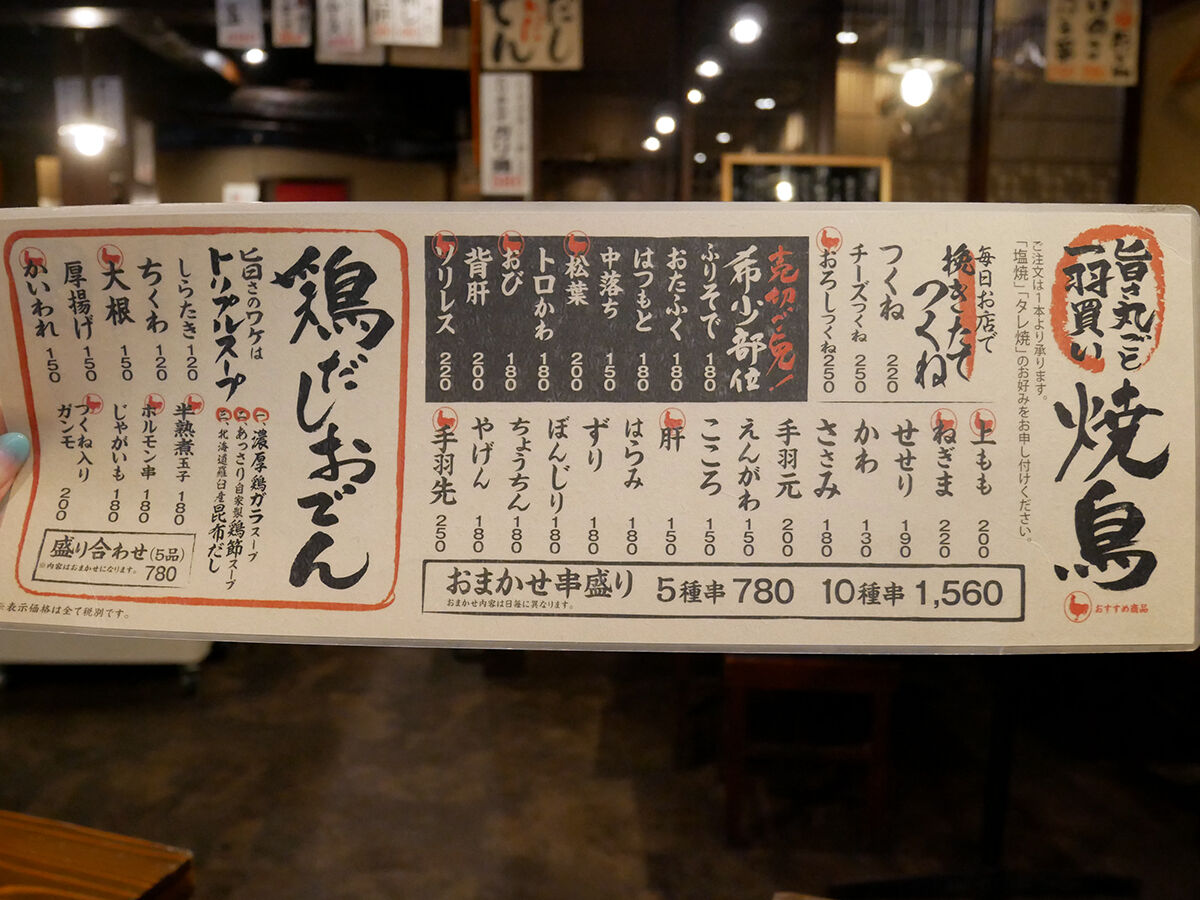 旨さ丸ごと
一羽買い
焼鳥
おすすめ商品
ご注文は1本より承ります。
「塩焼」「タレ焼」のお好みをお申し付けください。
毎日お店で
挽きたて
つくね
つくね 220
チーズつくね 250
おろしつくね 250
売切ご免!
希少部位
ふりそで 180
おたふく 220
はつもと 180
中落ち 150
松葉 200
トロかわ 180
おび 180
背肝 200
ソリレス 220
上もも 200
ねぎま 220
せせり 190
かわ 130
ささみ 180
手羽元 200
えんがわ 150
こころ 150
肝 150
はらみ 180
ずり 180
ぼんじり 180
ちょうちん 180
やげん 180
手羽先 250
おまかせ串盛り 5種串 780 10種串 1,560
おまかせ内容は日毎に異なります。
鶏だしおでん
旨さのワケは
トリプルスープ
一、濃厚鶏ガラスープ
二、あっさり自家製鶏節スープ
三、北海道羅臼産昆布だし
しらたき 120
ちくわ 120
大根 150
厚揚げ 150
かいわれ 150
半熟煮玉子 180
ホルモン串 180
じゃがいも 180
つくね入り
ガンモ 200
盛り合わせ(5品)
※内容はおまかせになります。 780
※表示価格は全て税別です。